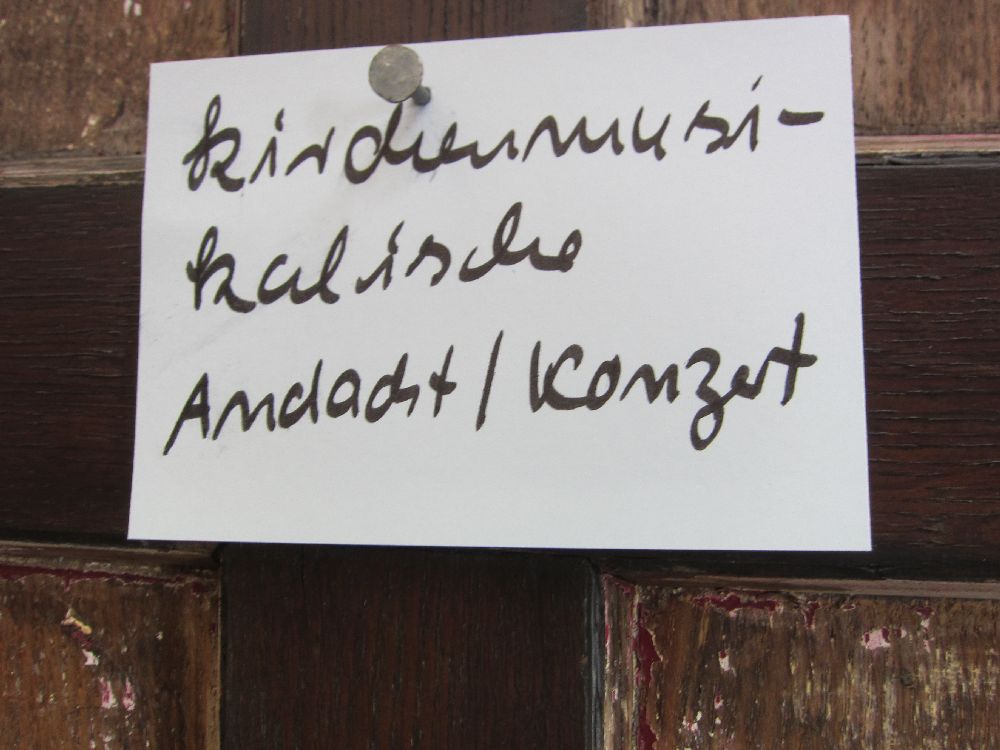 kirchenmusi-
kalische
Andacht / Konzert